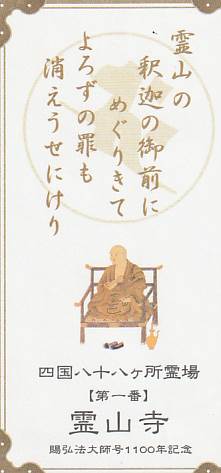 霊山の
釈迦の御前に
めぐりきて
よろずの罪も
消えうせにけり
四国八十八ヶ所霊場
【第一番】
霊山寺
賜弘法大師号1100年記念